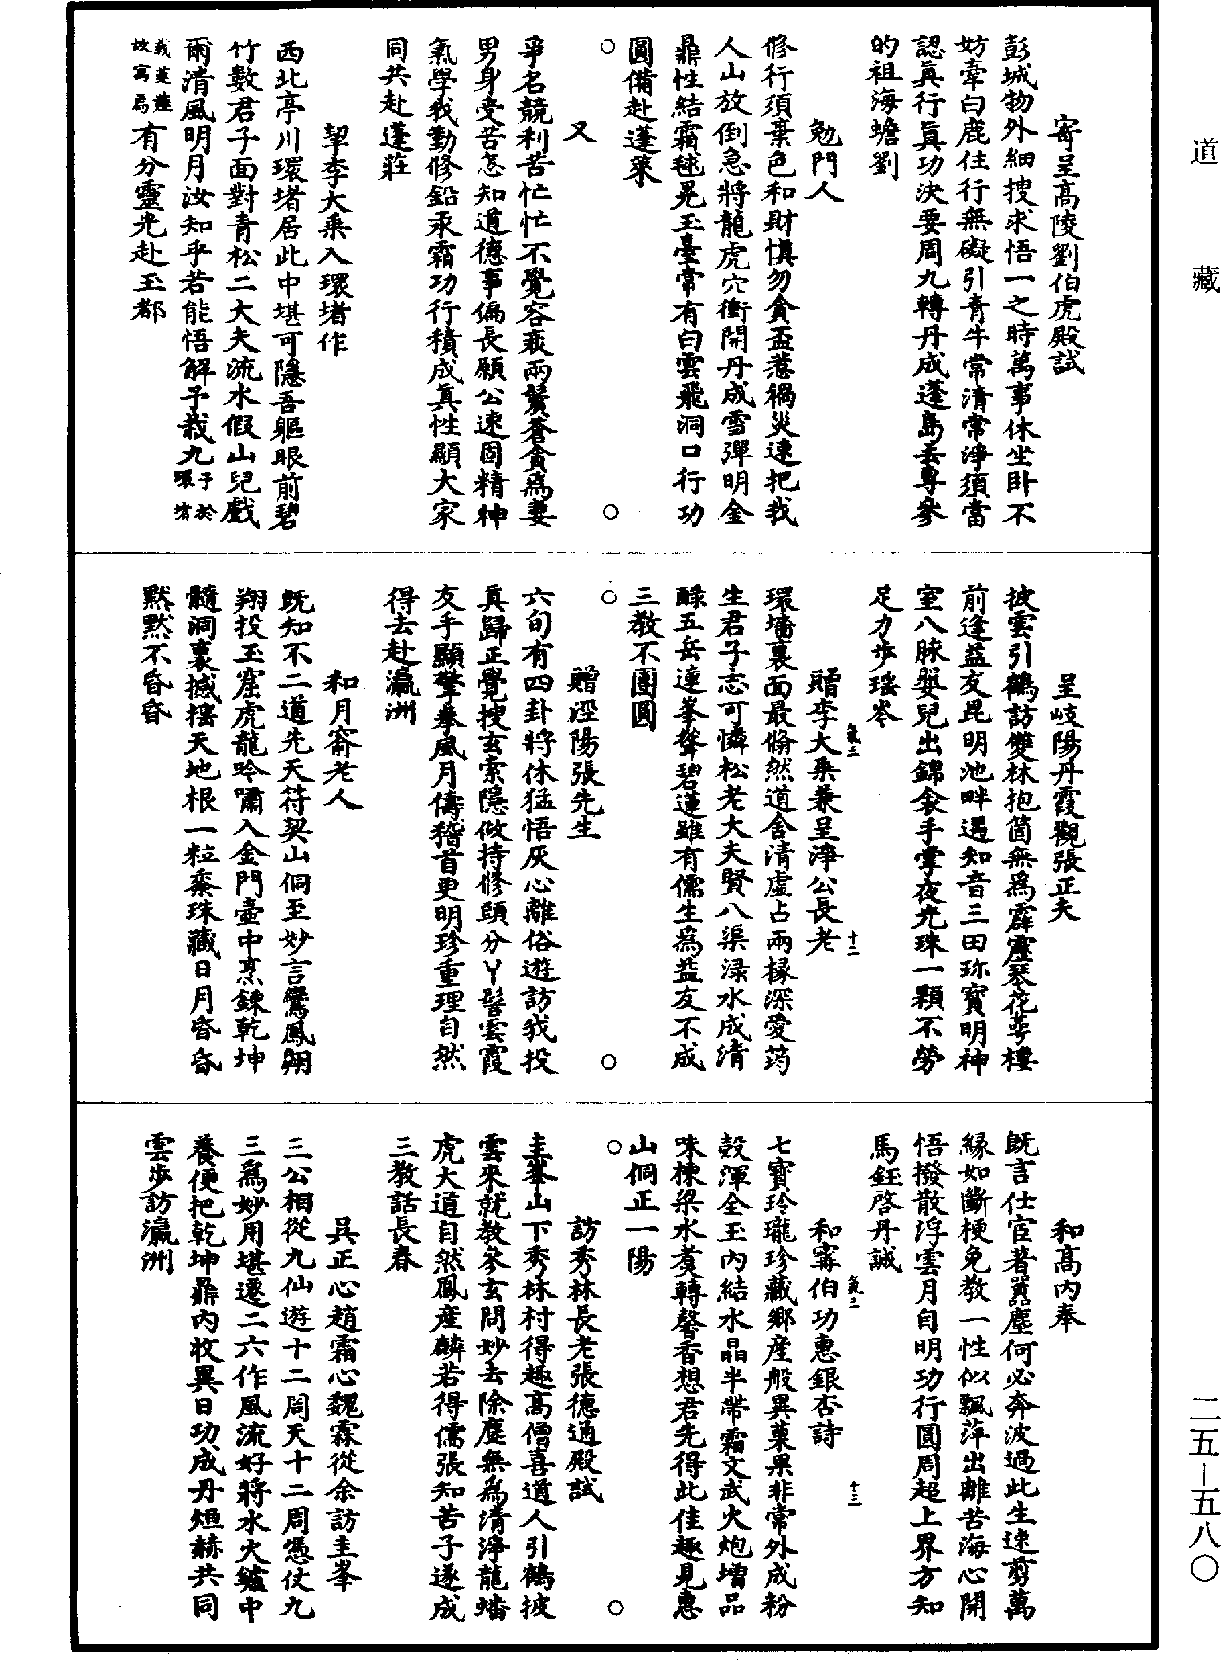 道藏
寄呈高陵劉伯虎殿試
彭城物外細搜求悟一之時萬事休坐卧不
妨牽白鹿住行無礙引青牛常清常淨須當
認真行真功決要周九轉丹成蓬島去專參
的祖海蟾劉
勉門人
修行須棄色和財慎勿貪盃惹禍災速把我
人山放倒急將龍虎穴衝開丹成雪彈明金
鼎性結霜毬晃玉臺常有白雲飛洞口行功
圓備赴蓬萊
又
爭名競利苦忙忙不覺容衰兩鬢蒼貪爲妻
男身受苦怎知道德事偏長願公速固精神
氣學我勤修鉛汞霜功行積成真性顯大家
同共赴蓬莊
挈李大乘入環堵作
西北亭川環堵居此中堪可隱吾軀眼前碧
竹數君子面對青松二大夫流水假山兒戲
爾清風明月汝知乎若能悟解予栽九予於環堵
栽蓮故寓焉有分靈光赴玉都
呈岐陽丹霞觀張正夫
披雲引鶴訪雙林抱箇無爲霹靂琴花萼樓
前逢益友昆明池畔遇知音三田珎寶明神
室八脉嬰兒出錦衾手掌夜光珠一顆不勞
足力步瑶岑
贈李大乘兼呈淨公長老
環墻裏面最翛然道舍清虛占兩椽深愛筠
生君子志可憐松老大夫賢八渠渌水成清
醁五岳連峯聳碧蓮雖有儒生爲益友不成
三教不團圓
贈涇陽張先生
六旬有四卦將休猛悟灰心離俗遊訪我投
真歸正覺搜玄索隱做持修頭分丫髻雲霞
友手顯擎拳風月儔稽首更明珍重理自然
得去赴瀛洲
和月齋老人
既知不二道先天符契山侗至妙言鸞鳳翺
翔投玉窟虎龍吟嘯入金門壺中烹鍊乾坤
髓洞裏撼摇天地根一粒黍珠藏日月昏昏
默默不昏昏
和高內奉
既言仕宦著囂塵何必奔波過此生速剪萬
緣如斷梗免教一性似飄萍出離苦海心開
悟撥散浮雲月自明功行圓周超上界方知
馬鈺啓丹誠
和甯伯功惠銀杏詩
七寶玲瓏珍藏鄉產般異菓果非常外成粉
殼渾全玉內結水晶半帶霜文武火炮增品
味棟梁水煑轉馨香想君先得此佳趣見惠
山侗正一陽
訪秀林長老張德通殿試
圭峯山下秀林村得趣高僧喜道人引鶴披
雲來就教參玄問妙去除塵無爲清淨龍蟠
虎大道自然鳳產麟若得儒張知苦子遂成
三教話長春
吳正心趙霜心魏霖從余訪圭峯
三公相從九仙遊十二周天十二周憑仗九
三爲妙用堪遷二六作風流好將水火鑪中
養便把乾坤鼎內收異日功成丹烜赫共同
雲步訪瀛洲
二五—五八〇